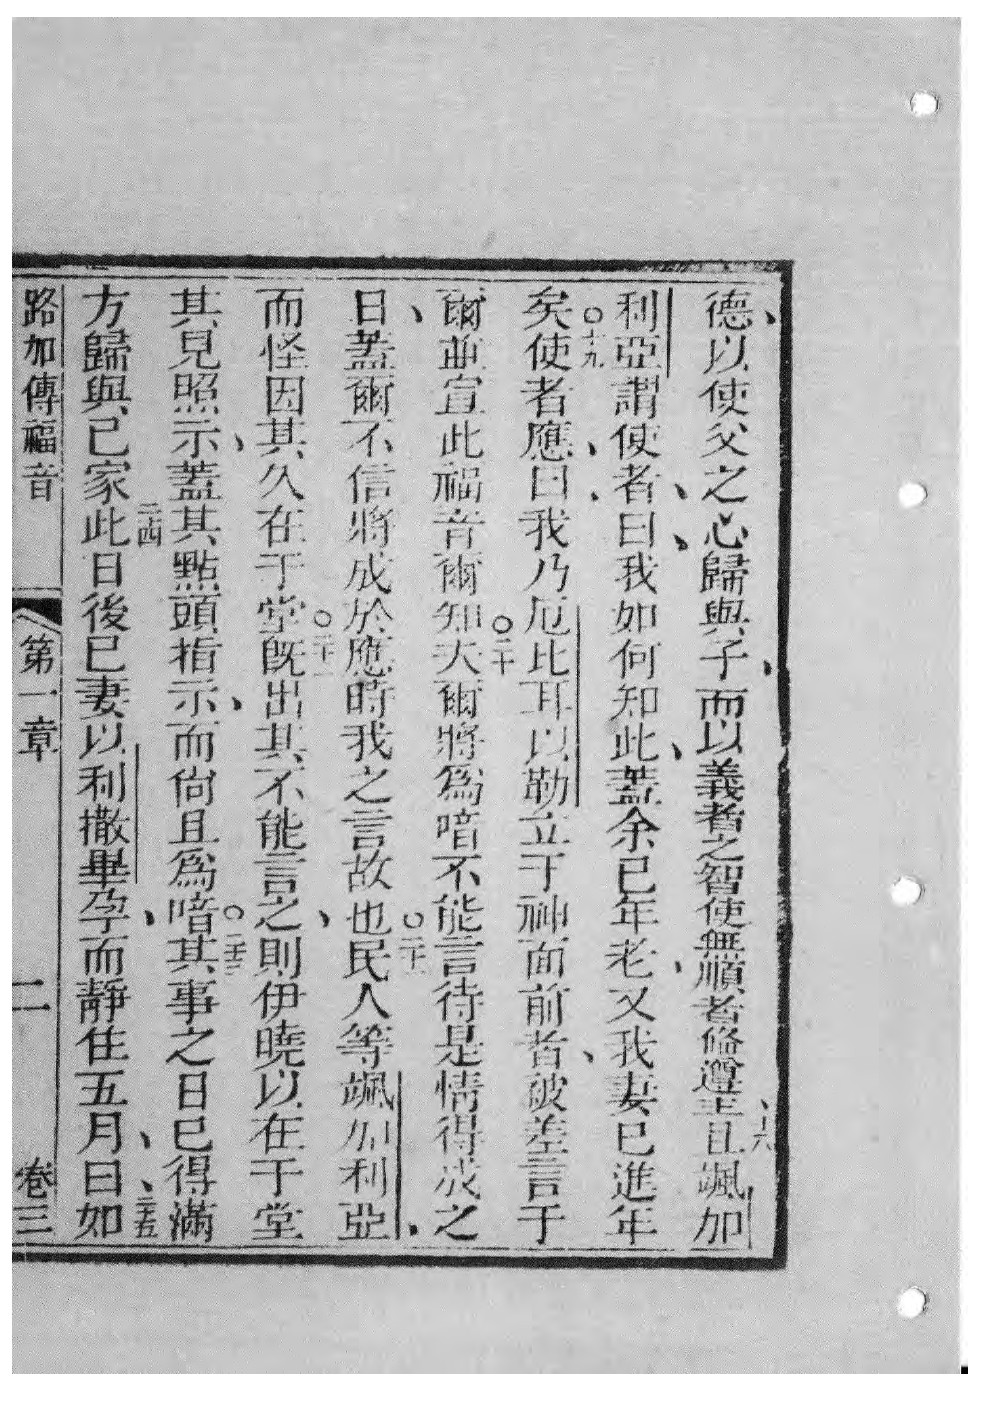 德以使父之心歸與子而以義者之智使無順者修遵主十八且颯加
利亞謂使者曰我如何知此蓋余已年老又我妻已進年
矣○十九使者應曰我乃厄比耳以勒立于神面前者被差言于
爾並宣此福音爾知○二十夫爾將為喑不能言待是情得成之
日蓋爾不信將成於應時我之言故也○二十一民人等颯加利亞
而怪因其久在于堂○二十二既出其不能言之則伊曉以在于堂
其見照示蓋其點頭指示而尚且為喑○二十三其事之日已得滿
方歸與己家二十四此日後已妻以利撒畢孕而靜住五月曰二十五如
路加傳福音 第一章 二 卷三